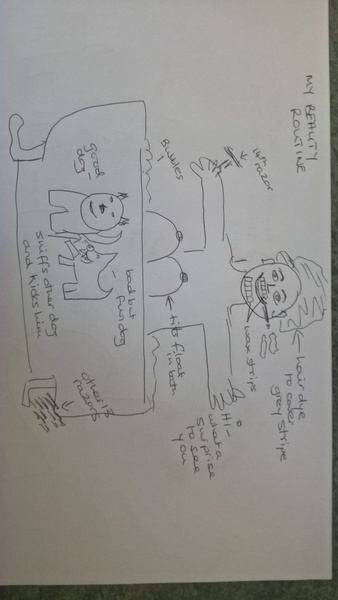 MY BEAUTY
ROUTINE
hair dye
to cover
grey stripe
1st razor
wax strips
Hi -
what a
surprise
to see
you
Bubbles
tits float
in bath
good
dog
bad but
fun dog
sniffs other dog
and kicks him
other 13
razors